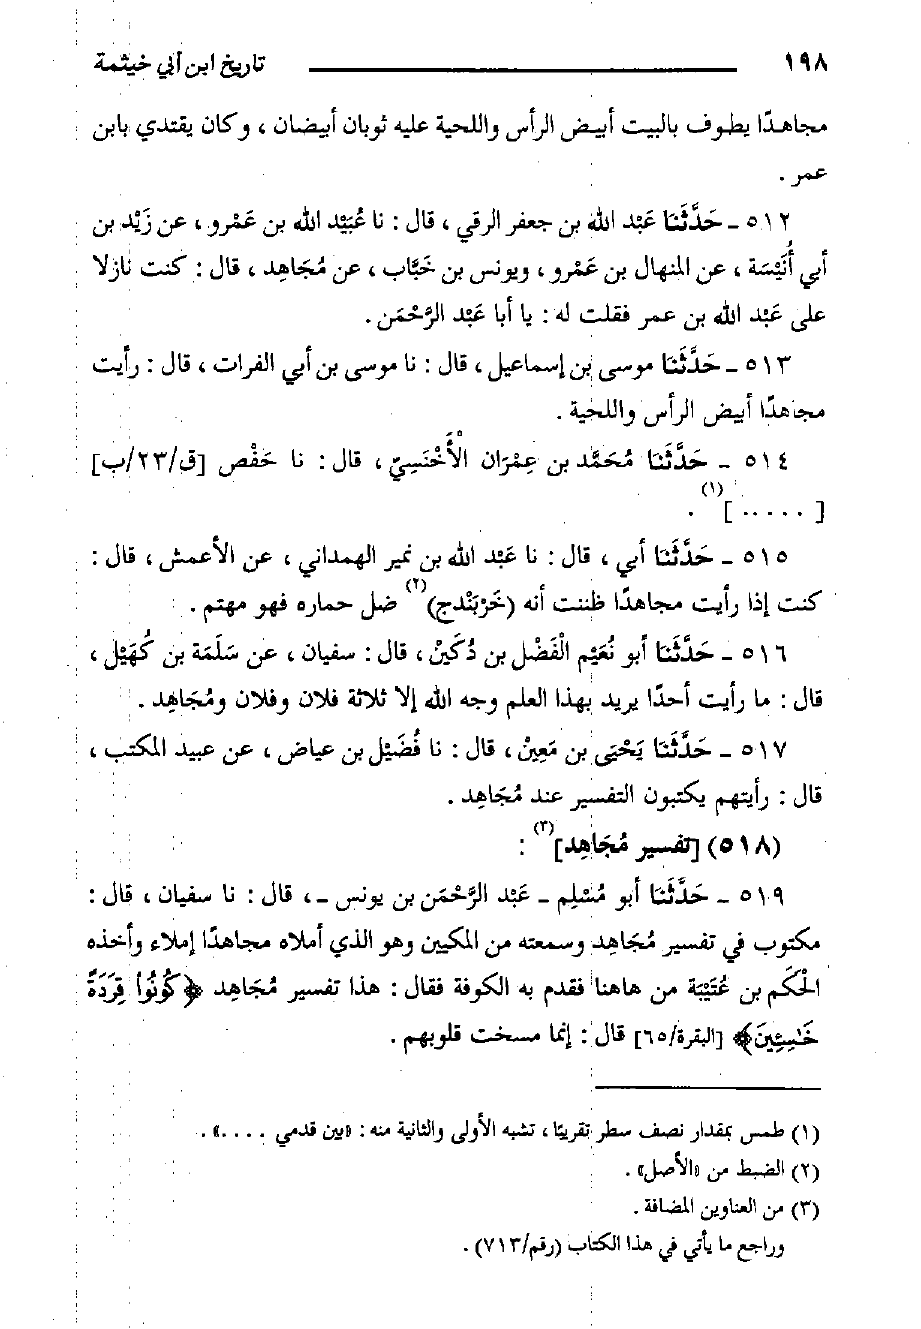 ١٩٨ تاريخ ابن أبي خيثمة
مجاهدًا يطوف بالبيت أبيض الرأس واللحية عليه ثوبان أبيضان ، وكان يقتدي بابن
عمر .
٥١٢ ـ حَدَّثَنَا عَبْد الله بن جعفر الرقي ، قال : نا عُبَيْد الله بن عَمْرو ، عن زَيْد بن
أبي أُنَيْسَة ، عن المنهال بن عَمْرو ، ويونس بن خَبَّاب ، عن مُجَاهِد ، قال : كنت نازلا
على عَبْد الله بن عمر فقلت له : يا أبا عَبْد الرَّحْمَن .
٥١٣ ـ حَدَّثَنَا موسى بن إسماعيل ، قال : نا موسى بن أبي الفرات ، قال : رأيت
مجاهدًا أبيض الرأس واللحية .
٥١٤ ـ حَدَّثَنَا مُحَمَّد بن عِمْرَان الْأَخْنَسِيّ ، قال : نا حَفْص [ق/٢٣/ب]
[ ..... ](١) .
٥١٥ ـ حَدَّثَنَا أبي ، قال : نا عَبْد الله بن نمير الهمداني ، عن الأعمش ، قال :
كنت إذا رأيت مجاهدًا ظننت أنه (خَرْبَنْدج)(٢) ضل حماره فهو مهتم .
٥١٦ ـ حَدَّثَنَا أبو نُعَيْم الْفَضْل بن دُكَيْنْ ، قال : سفيان ، عن سَلَمَة بن كُهَيْل ،
قال : ما رأيت أحدًا يريد بهذا العلم وجه الله إلا ثلاثة فلان وفلان ومُجَاهِد .
٥١٧ ـ حَدَّثَنَا يَحْيَى بن مَعِينْ ، قال : نا فُضَيْل بن عياض ، عن عبيد المكتب ،
قال : رأيتهم يكتبون التفسير عند مُجَاهِد .
(٥١٨) [تفسير مُجَاهِد](٣) :
٥١٩ ـ حَدَّثَنَا أبو مُسْلِم ـ عَبْد الرَّحْمَن بن يونس ـ ، قال : نا سفيان ، قال :
مكتوب في تفسير مُجَاهِد وسمعته من المكيين وهو الذي أملاه مجاهدًا إملاء وأخذه
الْحَكَم بن عُتَيْبَة من هاهنا فقدم به الكوفة فقال : هذا تفسير مُجَاهِد ﴿كُونُوا قِرَدَةً
خَاسِئِينَ﴾ [البقرة/٦٥] قال : إنما مسخت قلوبهم .
(١) طمس بمقدار نصف سطر تقريبًا ، تشبه الأولى والثانية منه : «بين قدمي ....» .
(٢) الضبط من «الأصل» .
(٣) من العناوين المضافة .
وراجع ما يأتي في هذا الكتاب (رقم/٧١٣) .